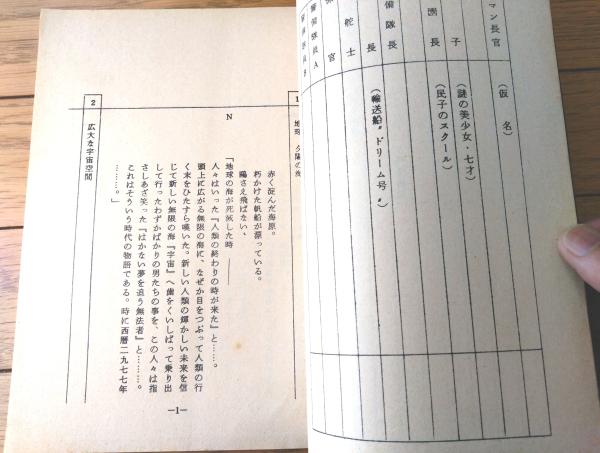 マン長官
（仮　名）
団長
子
（謎の美少女・七才）
（民子のスクール）
備隊長
長
（輸送船〝ドリーム号〟）
舵士
官
備隊員A
1
地球　夕陽の
赤く淀んだ海原。
朽かけた帆船が漂っている。
鷗さえ飛ばない、
N
『地球の海が死滅した時――
人々はいった『人類の終わりの時が来た』と……。
頭上に広がる無限の海に、なぜか目をつぶって人類の行
く末をひたすら嘆いた。新しい人類の輝かしい未来を信
じて新しい無限の海『宇宙』へ歯をくいしばって乗り出
して行ったわずかばかりの男たちの事を、この人々は指
さしあざ笑った『はかない夢を追う無法者』と………。
これはそういう時代の物語である。時に西暦二九七七年
………。』
2
広大な宇宙空間
—1—